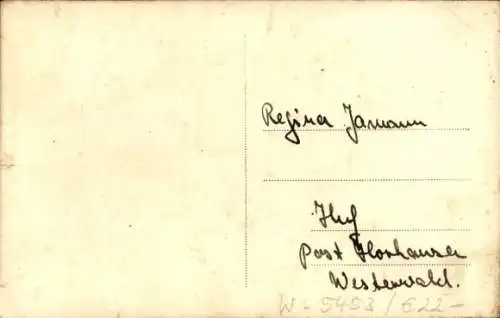 Regina Jamann
Huf
Post Horhausen
Westerwald.
W - 5453 / €22-